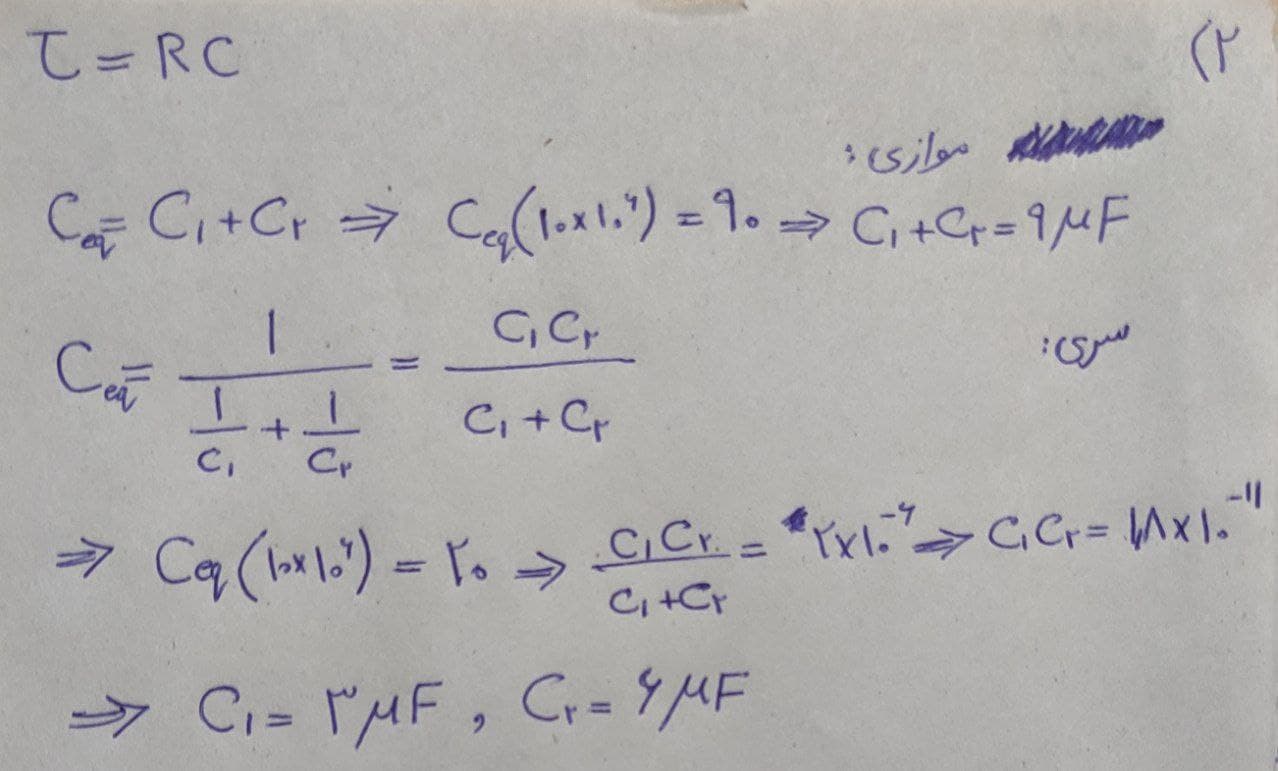 (۲
τ = RC
موازی:
C_eq = C_۱ + C_۲ ⇒ C_eq(۱۰×۱۰^۶) = ۹۰ ⇒ C_۱ + C_۲ = ۹ μF
سری:
C_eq = 1/(1/C_۱ + 1/C_۲) = C_۱C_۲/(C_۱ + C_۲)
⇒ C_eq(۱۰×۱۰^۶) = ۲۰ ⇒ C_۱C_۲/(C_۱ + C_۲) = ۲×۱۰^-۶ ⇒ C_۱C_۲ = ۱۸×۱۰^-۱۱
⇒ C_۱ = ۳ μF , C_۲ = ۶ μF